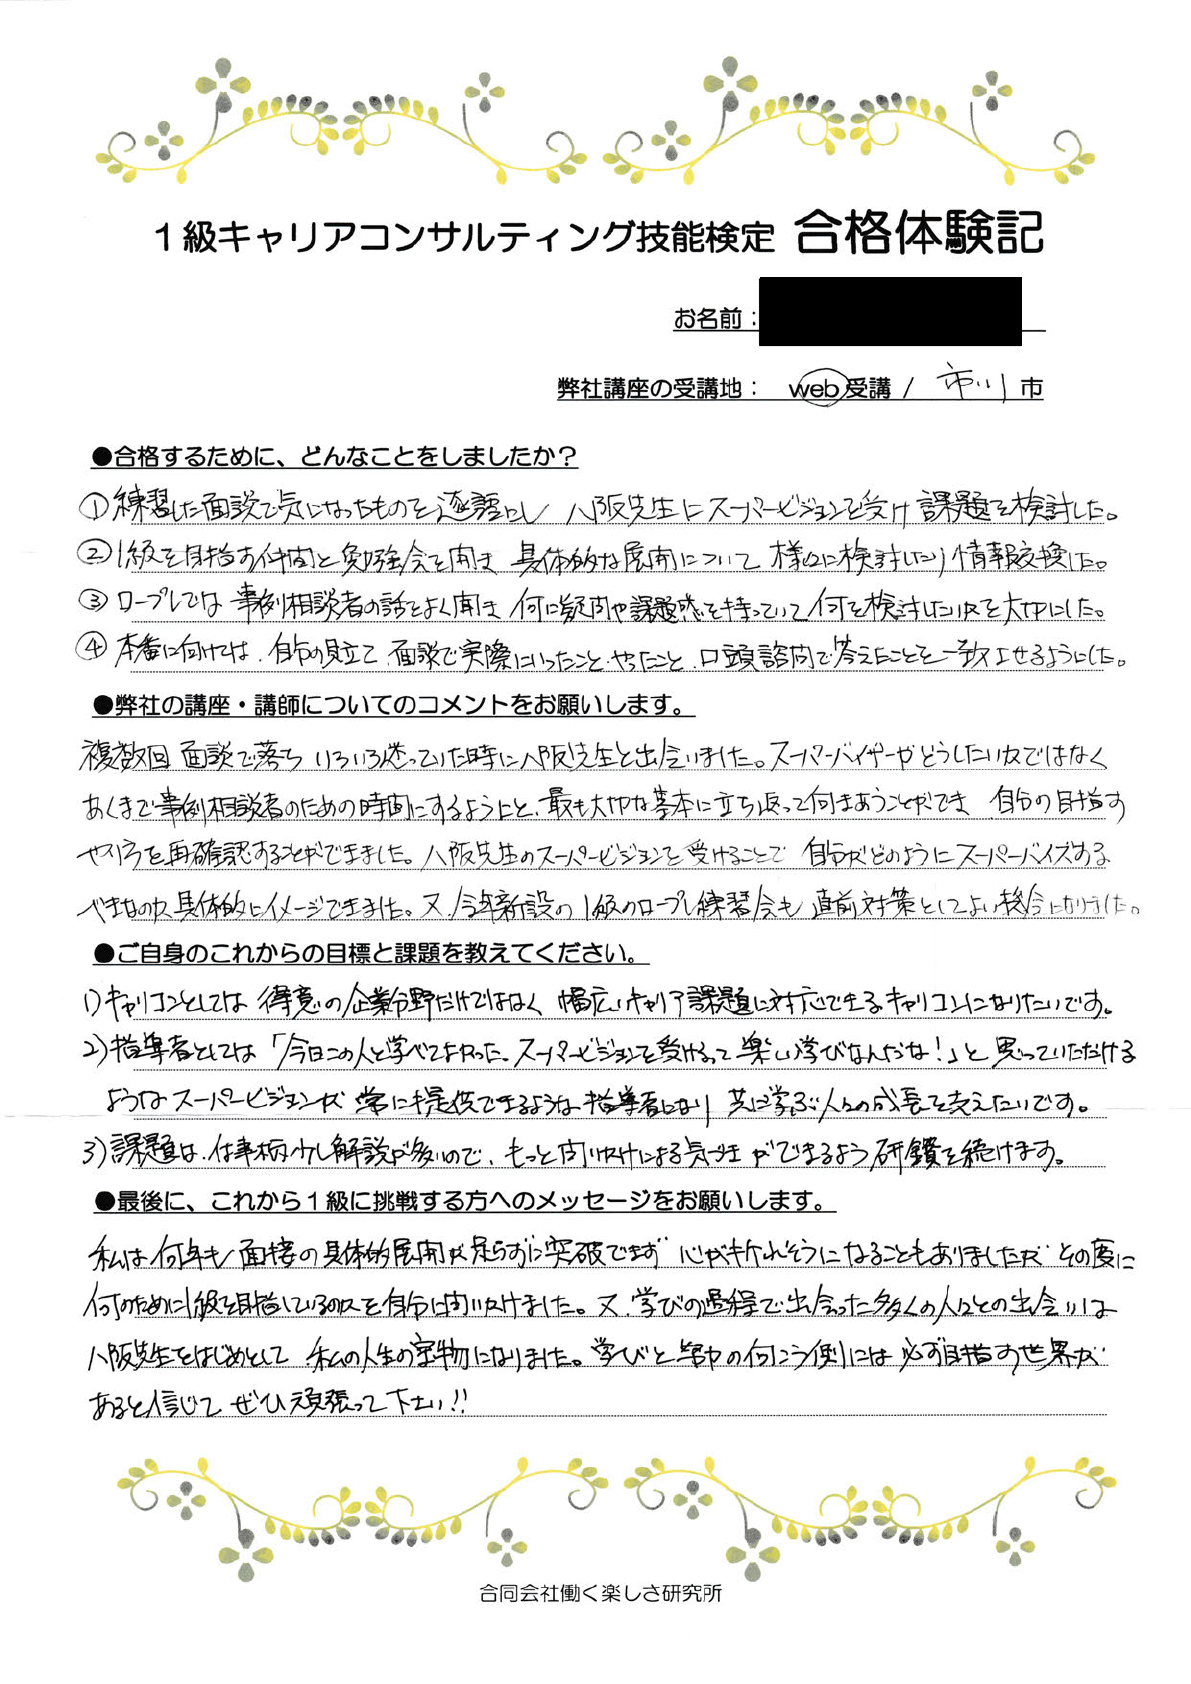 1級キャリアコンサルティング技能検定 合格体験記
お名前：
弊社講座の受講地： web受講 / 市川 市
●合格するために、どんなことをしましたか？
①練習した面談で気になったものを逐語にし 八阪先生にスーパービジョンを受け 課題を検討した。
②1級を目指す仲間と勉強会を開き 具体的な展開について 様々に検討したり情報交換した。
③ロープレでは 事例相談者の話をよく聞き 何に疑問や課題感を持っていて 何を検討したいかを大切にした。
④本番に向けては、自分の見立て、面談で実際にいったこと、やったこと、口頭諮問で答えたことを一致させるようにした。
●弊社の講座・講師についてのコメントをお願いします。
複数回 面談で落ち いろいろ迷っていた時に八阪先生と出会いました。スーパーバイザーがどうしたいかではなく
あくまで事例相談者のための時間にするようにと、最も大切な基本に立ち返って向きあうことができ 自分の目指す
やり方を再確認することができました。八阪先生のスーパービジョンを受けることで 自分がどのようにスーパーバイズする
べきなのか具体的にイメージできました。又、今年新設の1級のロープレ練習会も 直前対策としてよい機会になりました。
●ご自身のこれからの目標と課題を教えてください。
1)キャリコンとしては 得意の企業分野だけではなく 幅広いキャリア課題に対応できるキャリコンになりたいです。
2)指導者としては「今日この人と学べてよかった。スーパービジョンを受けるって楽しい学びなんだな！」と思っていただける
ようなスーパービジョンが 常に提供できるような指導者になり 共に学ぶ人々の成長を支えたいです。
3)課題は、仕事柄少し解説が多いので、もっと問いかけによる気づきができるよう研鑽を続けます。
●最後に、これから1級に挑戦する方へのメッセージをお願いします。
私は何年も 面接の具体的展開が足らずに突破できず 心が折れそうになることもありましたが その度に
何のために1級を目指しているのかを自分に問いかけました。又、学びの過程で出会った多くの人々との出会いは
八阪先生をはじめとして 私の人生の宝物になりました。学びと努力の向こう側には 必ず目指す世界が
あると信じて ぜひ頑張って下さい!!
合同会社働く楽しさ研究所